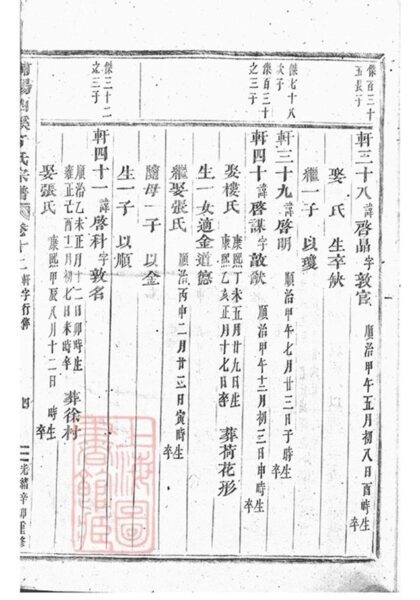 傑百三十
五長子
軒三十八諱啓晶字敦官 順治甲午五月初八日酉時生
卒
娶 氏 生卒缺
繼一子 以瓊
傑七十八
次子
軒三十九諱啓明 順治甲午七月廿三日子時生
卒
傑百三十
之三子
軒四十諱啓謀字敬猷 順治甲午十二月初三日申時生
卒
娶樓氏 康熙丁未五月廿九日生
康熙乙亥正月十七日卒 葬荷花形
生一女適金道德
繼娶張氏 順治丙申二月廿三日寅時生
卒
隨母一子 以金
生一子 以順
傑三十二
之三子
軒四十一諱啓科字敦名 順治乙未正月十二日卯時生
雍正乙酉十二月初七日未時卒 葬徐村
娶張氏 康熙甲辰八月十二日 時生
卒
陽 溪 氏宗譜 卷十二 軒字行傳 四 光緒辛卯重修
上海圖
書館藏